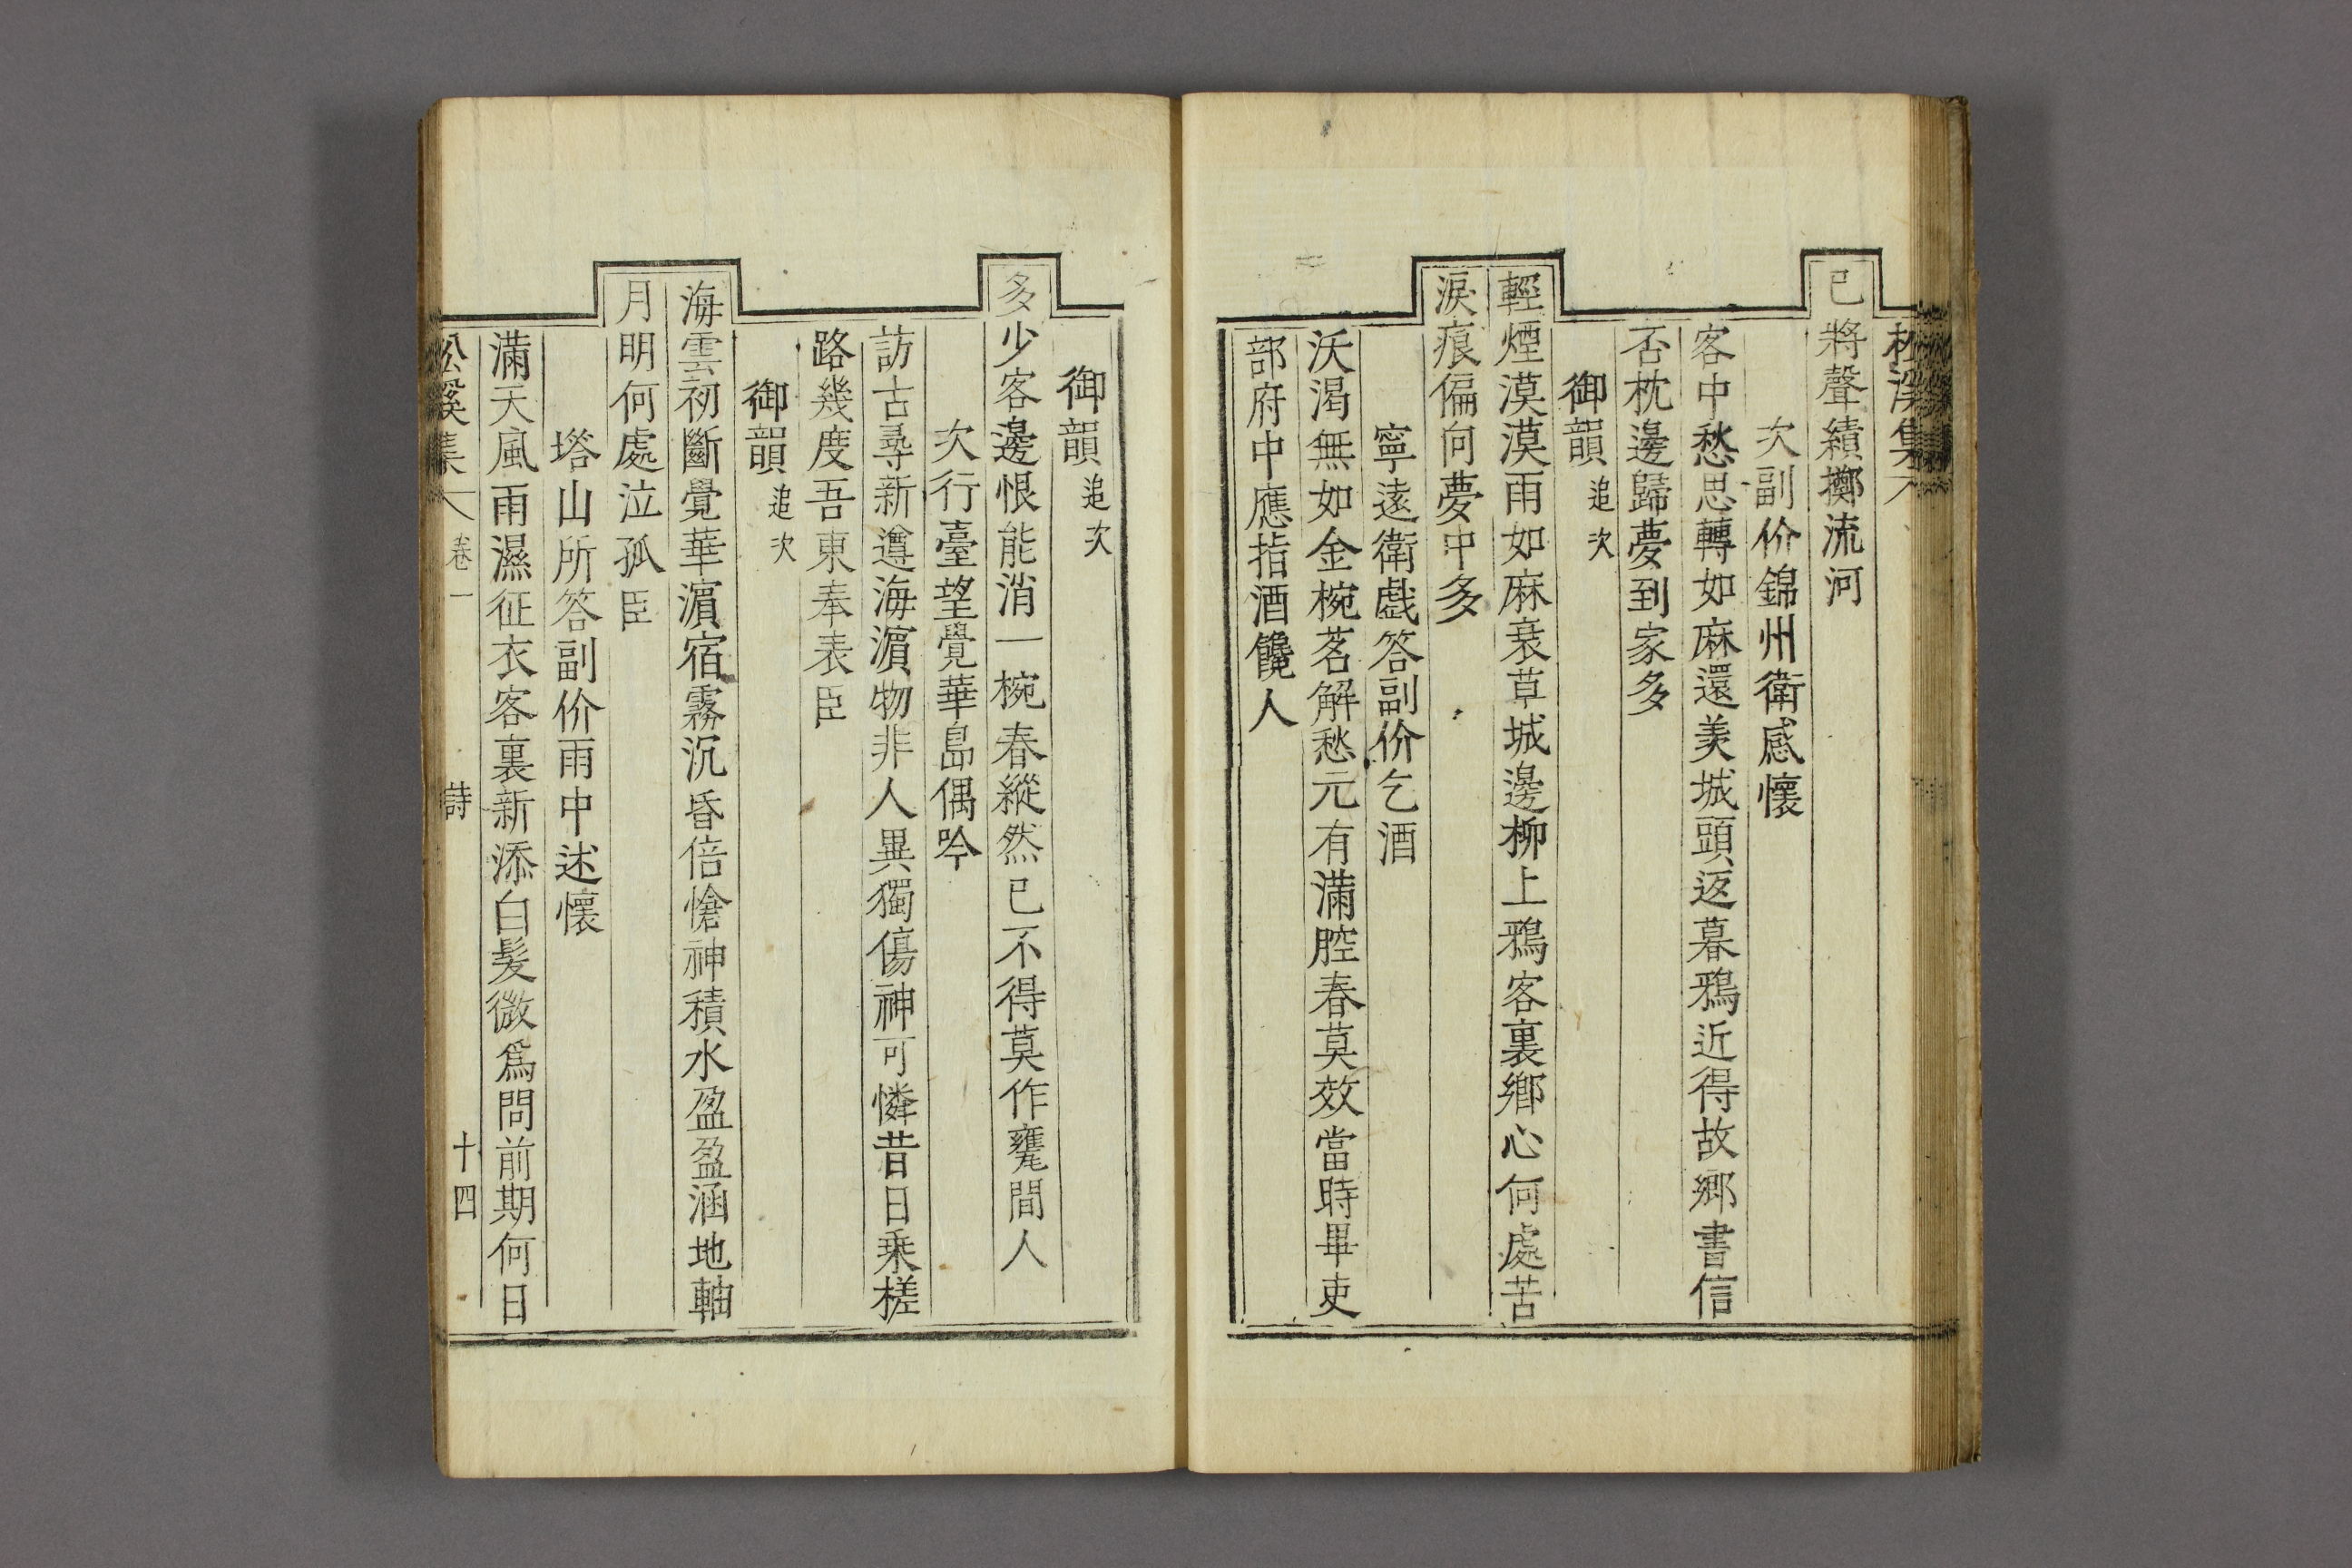 松溪集
已將聲績擲流河
次副价錦州衛感懷
客中愁思轉如麻還羨城頭返暮鴉近得故鄉書信
否枕邊歸夢到家多
御韻追次
輕煙漠漠雨如麻衰草城邊柳上鴉客裏鄉心何處苦
淚痕偏向夢中多
寧遠衛戲答副价乞酒
沃渴無如金椀茗解愁元有滿腔春莫效當時畢吏
部府中應指酒饞人
御韻追次
多少客邊恨能消一椀春縱然已不得莫作甕間人
次行臺望覺華島偶吟
訪古尋新遵海濵物非人異獨傷神可憐昔日乘槎
路幾度吾東奉表臣
御韻追次
海雲初斷覺華濵宿霧沉昏倍愴神積水盈盈涵地軸
月明何處泣孤臣
塔山所答副价雨中述懷
滿天風雨濕征衣客裏新添白髮微爲問前期何日
松溪集 卷一 詩 十四